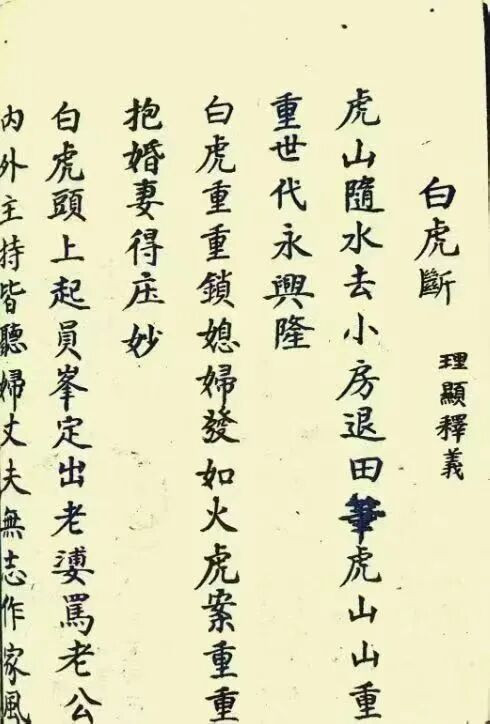 白虎斷
理顯釋義
虎山隨水去小房退田筆虎山山重
重世代永興隆
白虎重重鎖媳婦發如火虎案重重
抱婚妻得庄妙
白虎頭上起員峯定出老婆罵老公
內外主持皆聽婦丈夫無志作家風